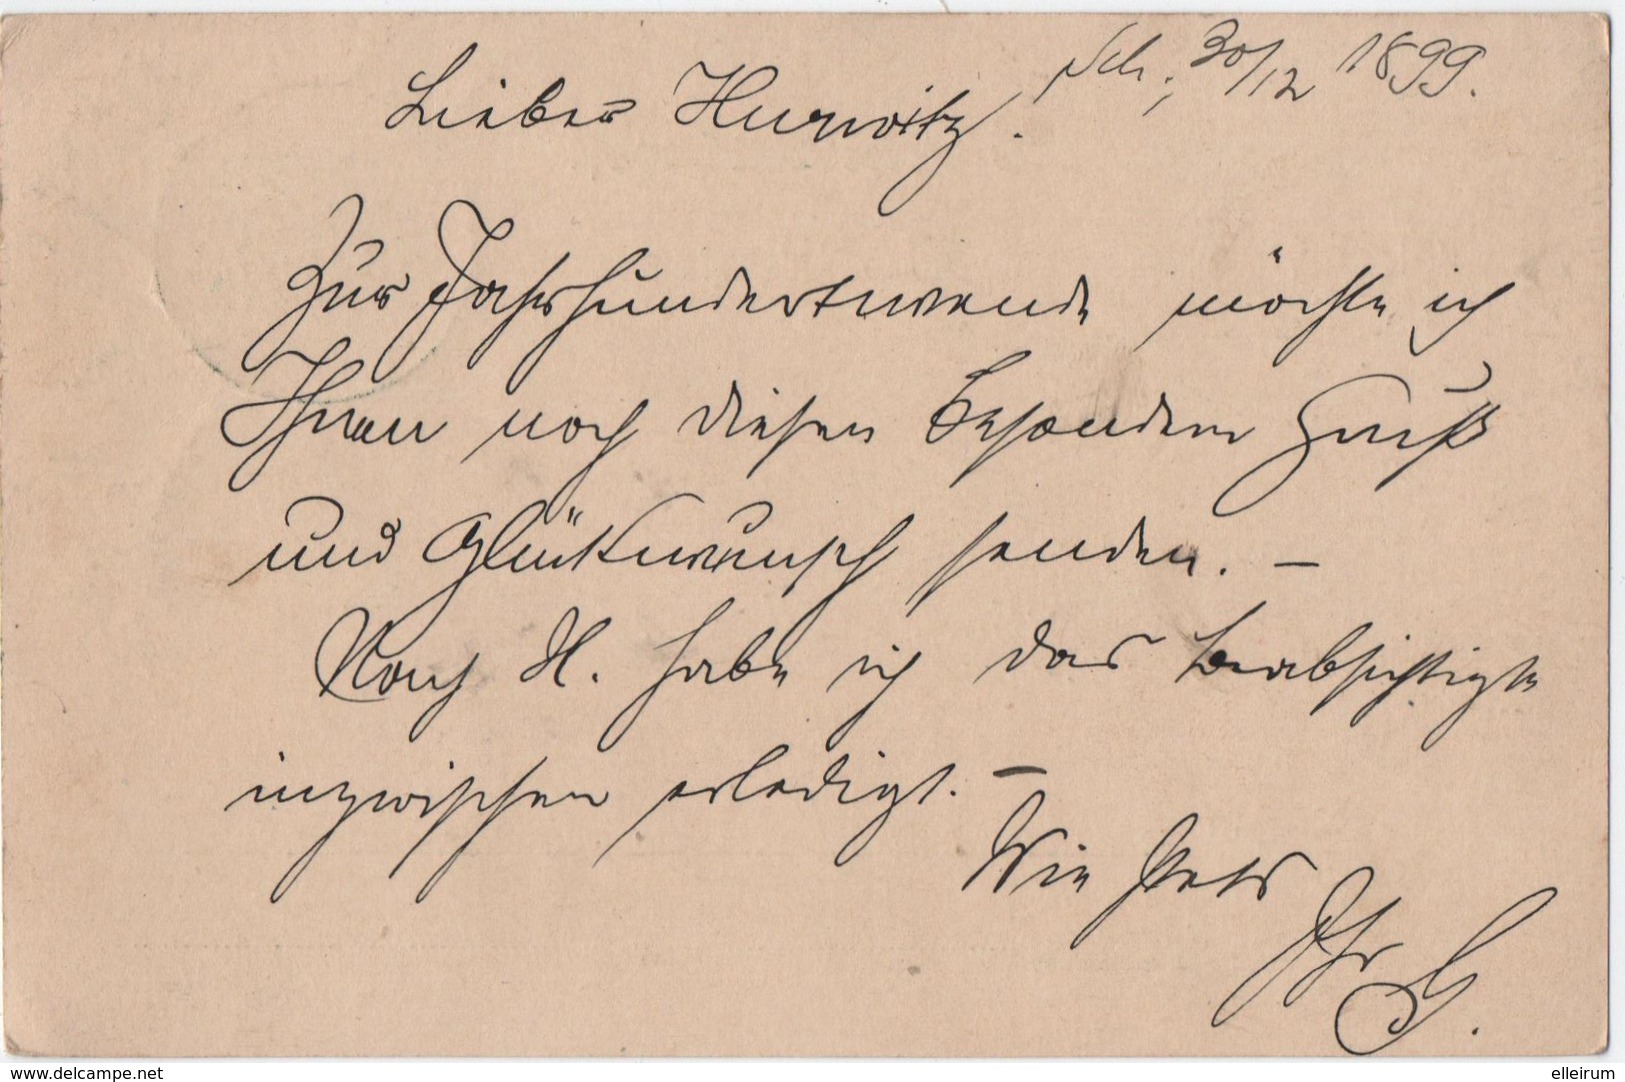 Sch., 30/12 1899.
Lieber Hurwitz.
Zur Jahrhundertwende möchte ich
Ihnen noch diesen besondern Gruß
und Glückwunsch senden. –
Nach H. habe ich das beabsichtigte
inzwischen erledigt. –
Wie stets
Ihr G.
www.delcampe.net
elleirum